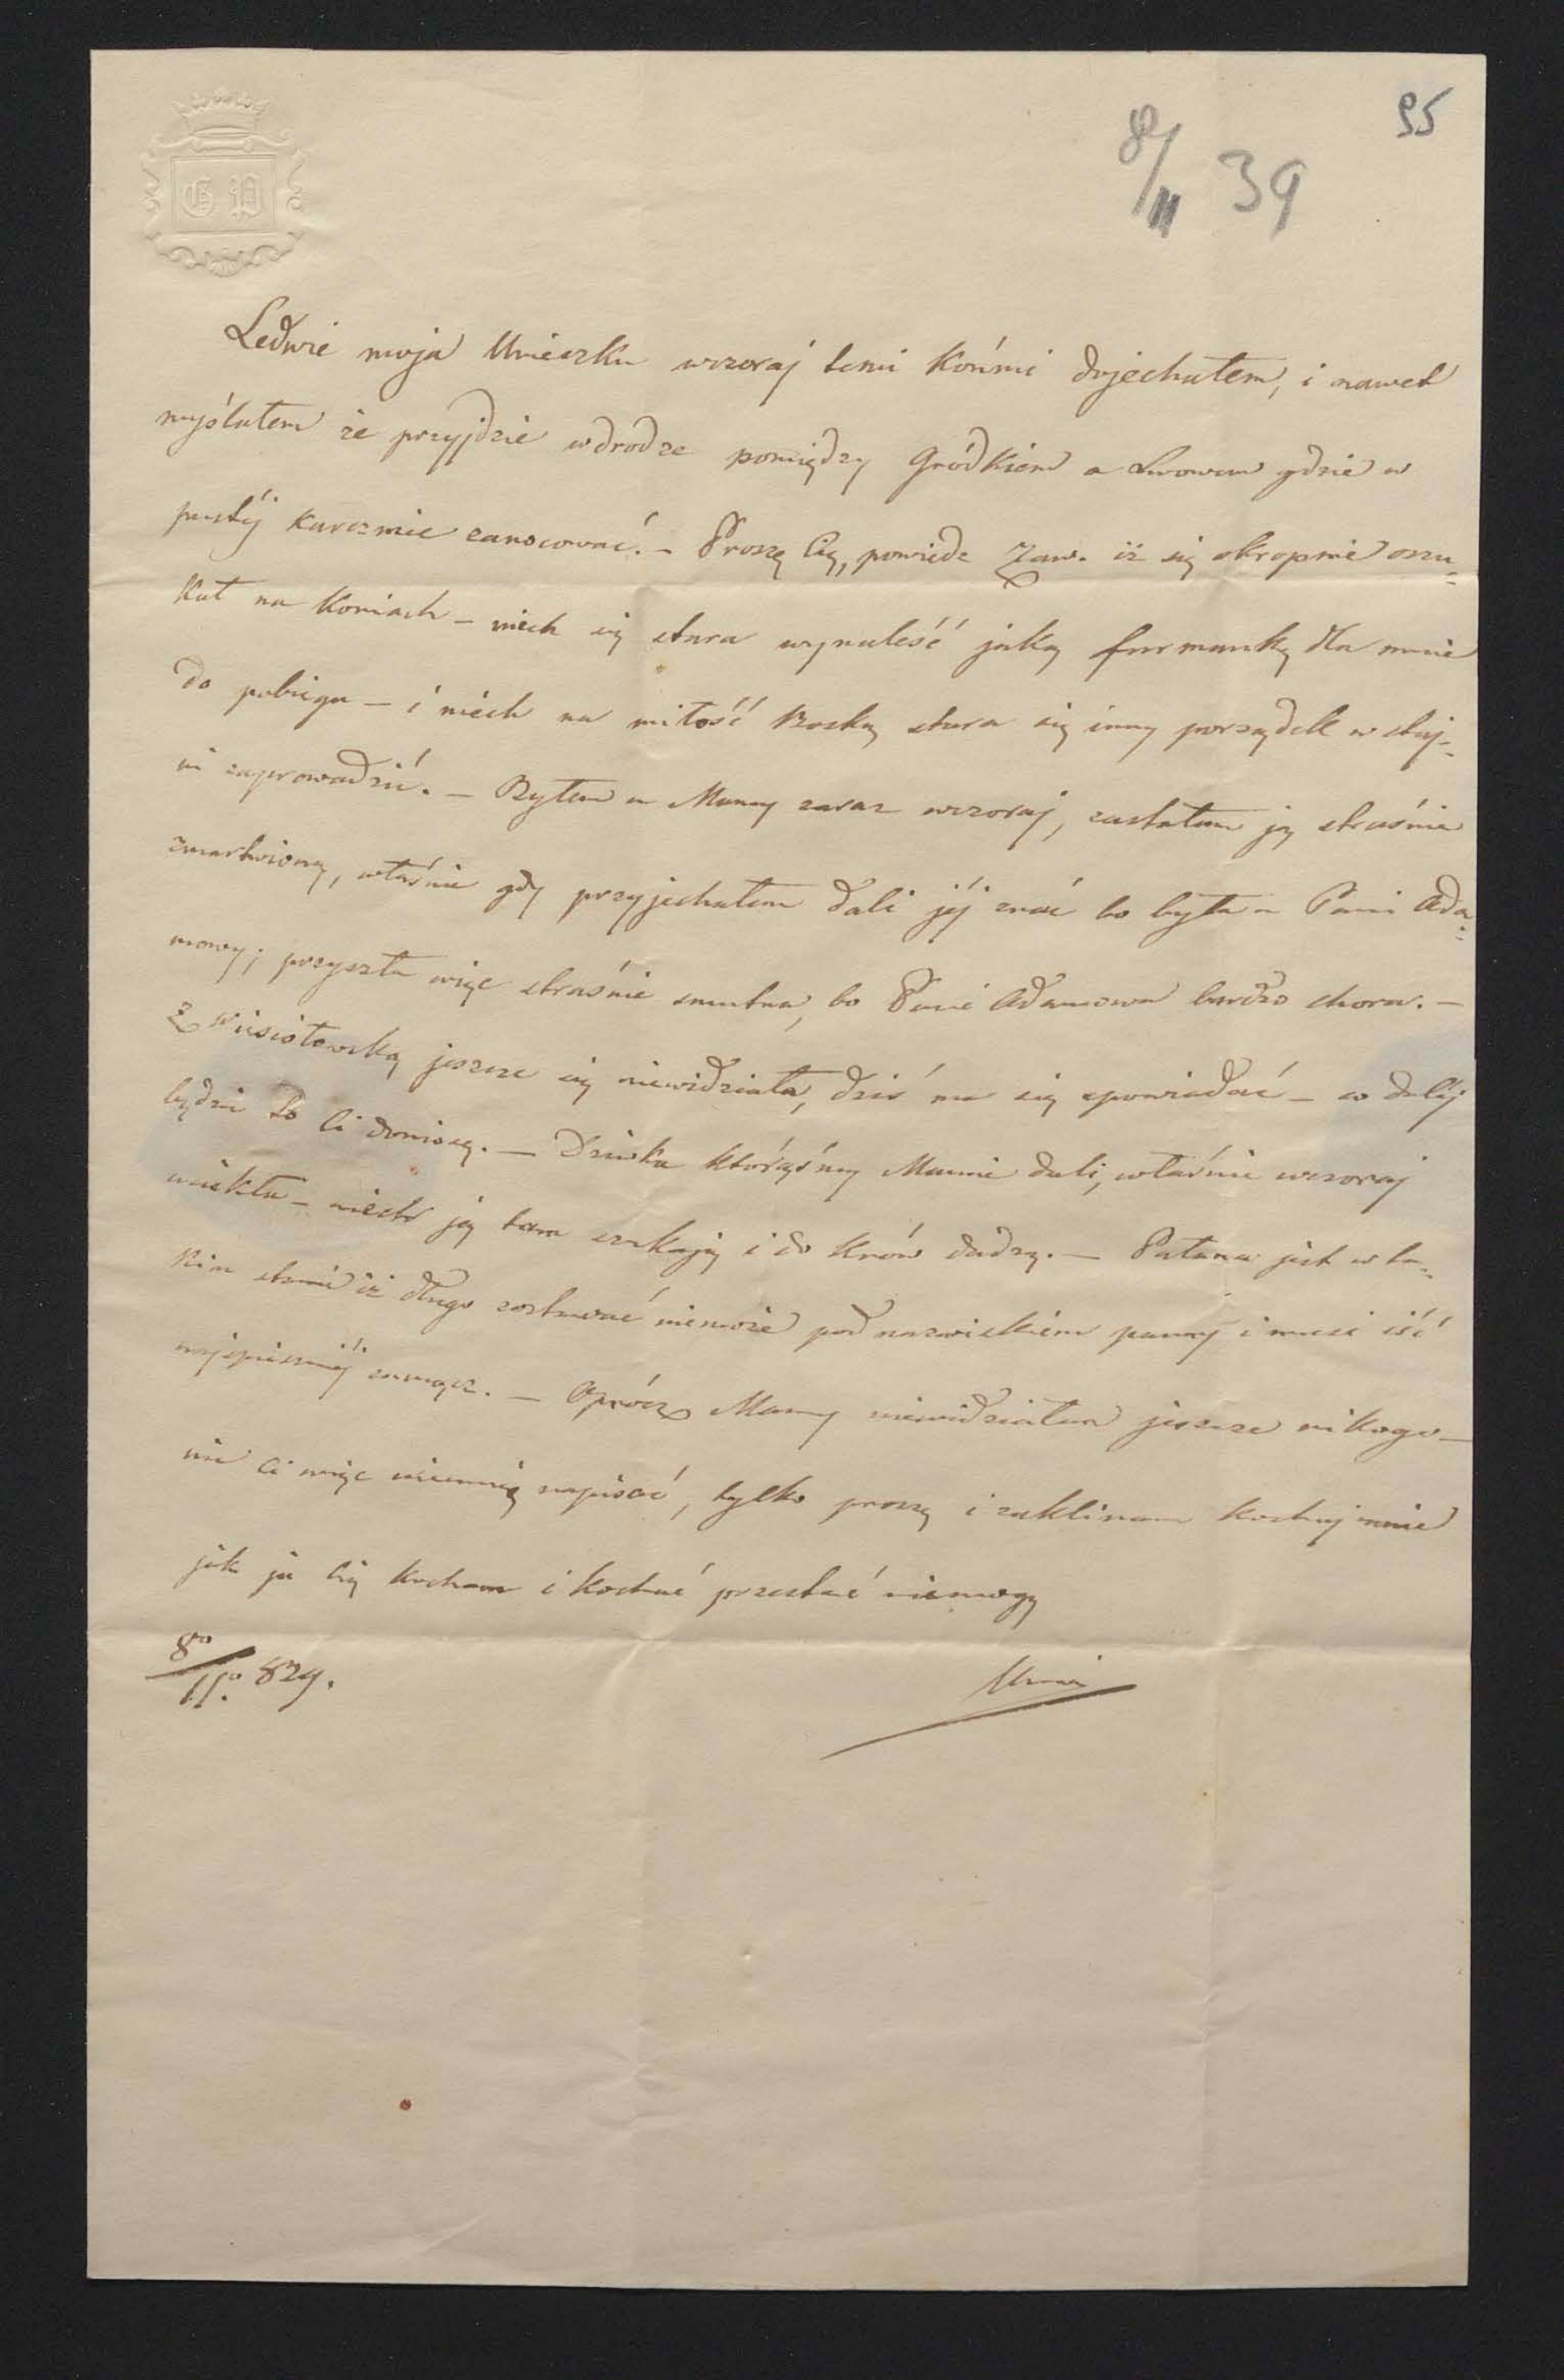 95
8/11 39
G P
Ledwie moja Unieczku wczoraj temi Końmi dojechałem, i nawet
myślałem że przyjdzie wdrodze pomiędzy Gródkiem a Lwowem gdzie w
pustéj karczmie zanocować. – Proszę Cię, powiedz Zaw. iż się okropnie oszu=
kał na koniach – niech się stara wynaleść jaką furmankę dla mnie
do pobiegu – i niech na miłość Boską stara się inny porządek w staj=
ni zaprowadzić. – Byłem u Mamy zaraz wczoraj, zastałem ją straśnie
zmartwioną, właśnie gdy przyjechałem dali jéj znać bo była u Pani Ada=
mowy; przyszła więc straśnie smutna, bo Pani Adamowa bardzo chora. –
Z jeszcze się niewidziała, dziś ma się spowiadać – co daléj
będzie to Ci doniosę. – Dziwka którąśmy Mamie dali, właśnie wczoraj
uciekła – niech ją tam szukają i do krów dadzą. – jest w ta=
kim stanie iż długo zostawać niemoże pod nazwiskiem panny i musi iść
najspieszniéj zamąż. – Oprócz Mamy niewidziałem jeszcze nikogo –
nie Ci więc napisać, tylko proszę i zaklinam kochaj mnie
jak ja Cię kocham i kochać przestać niemogę
8go/11o. 839.